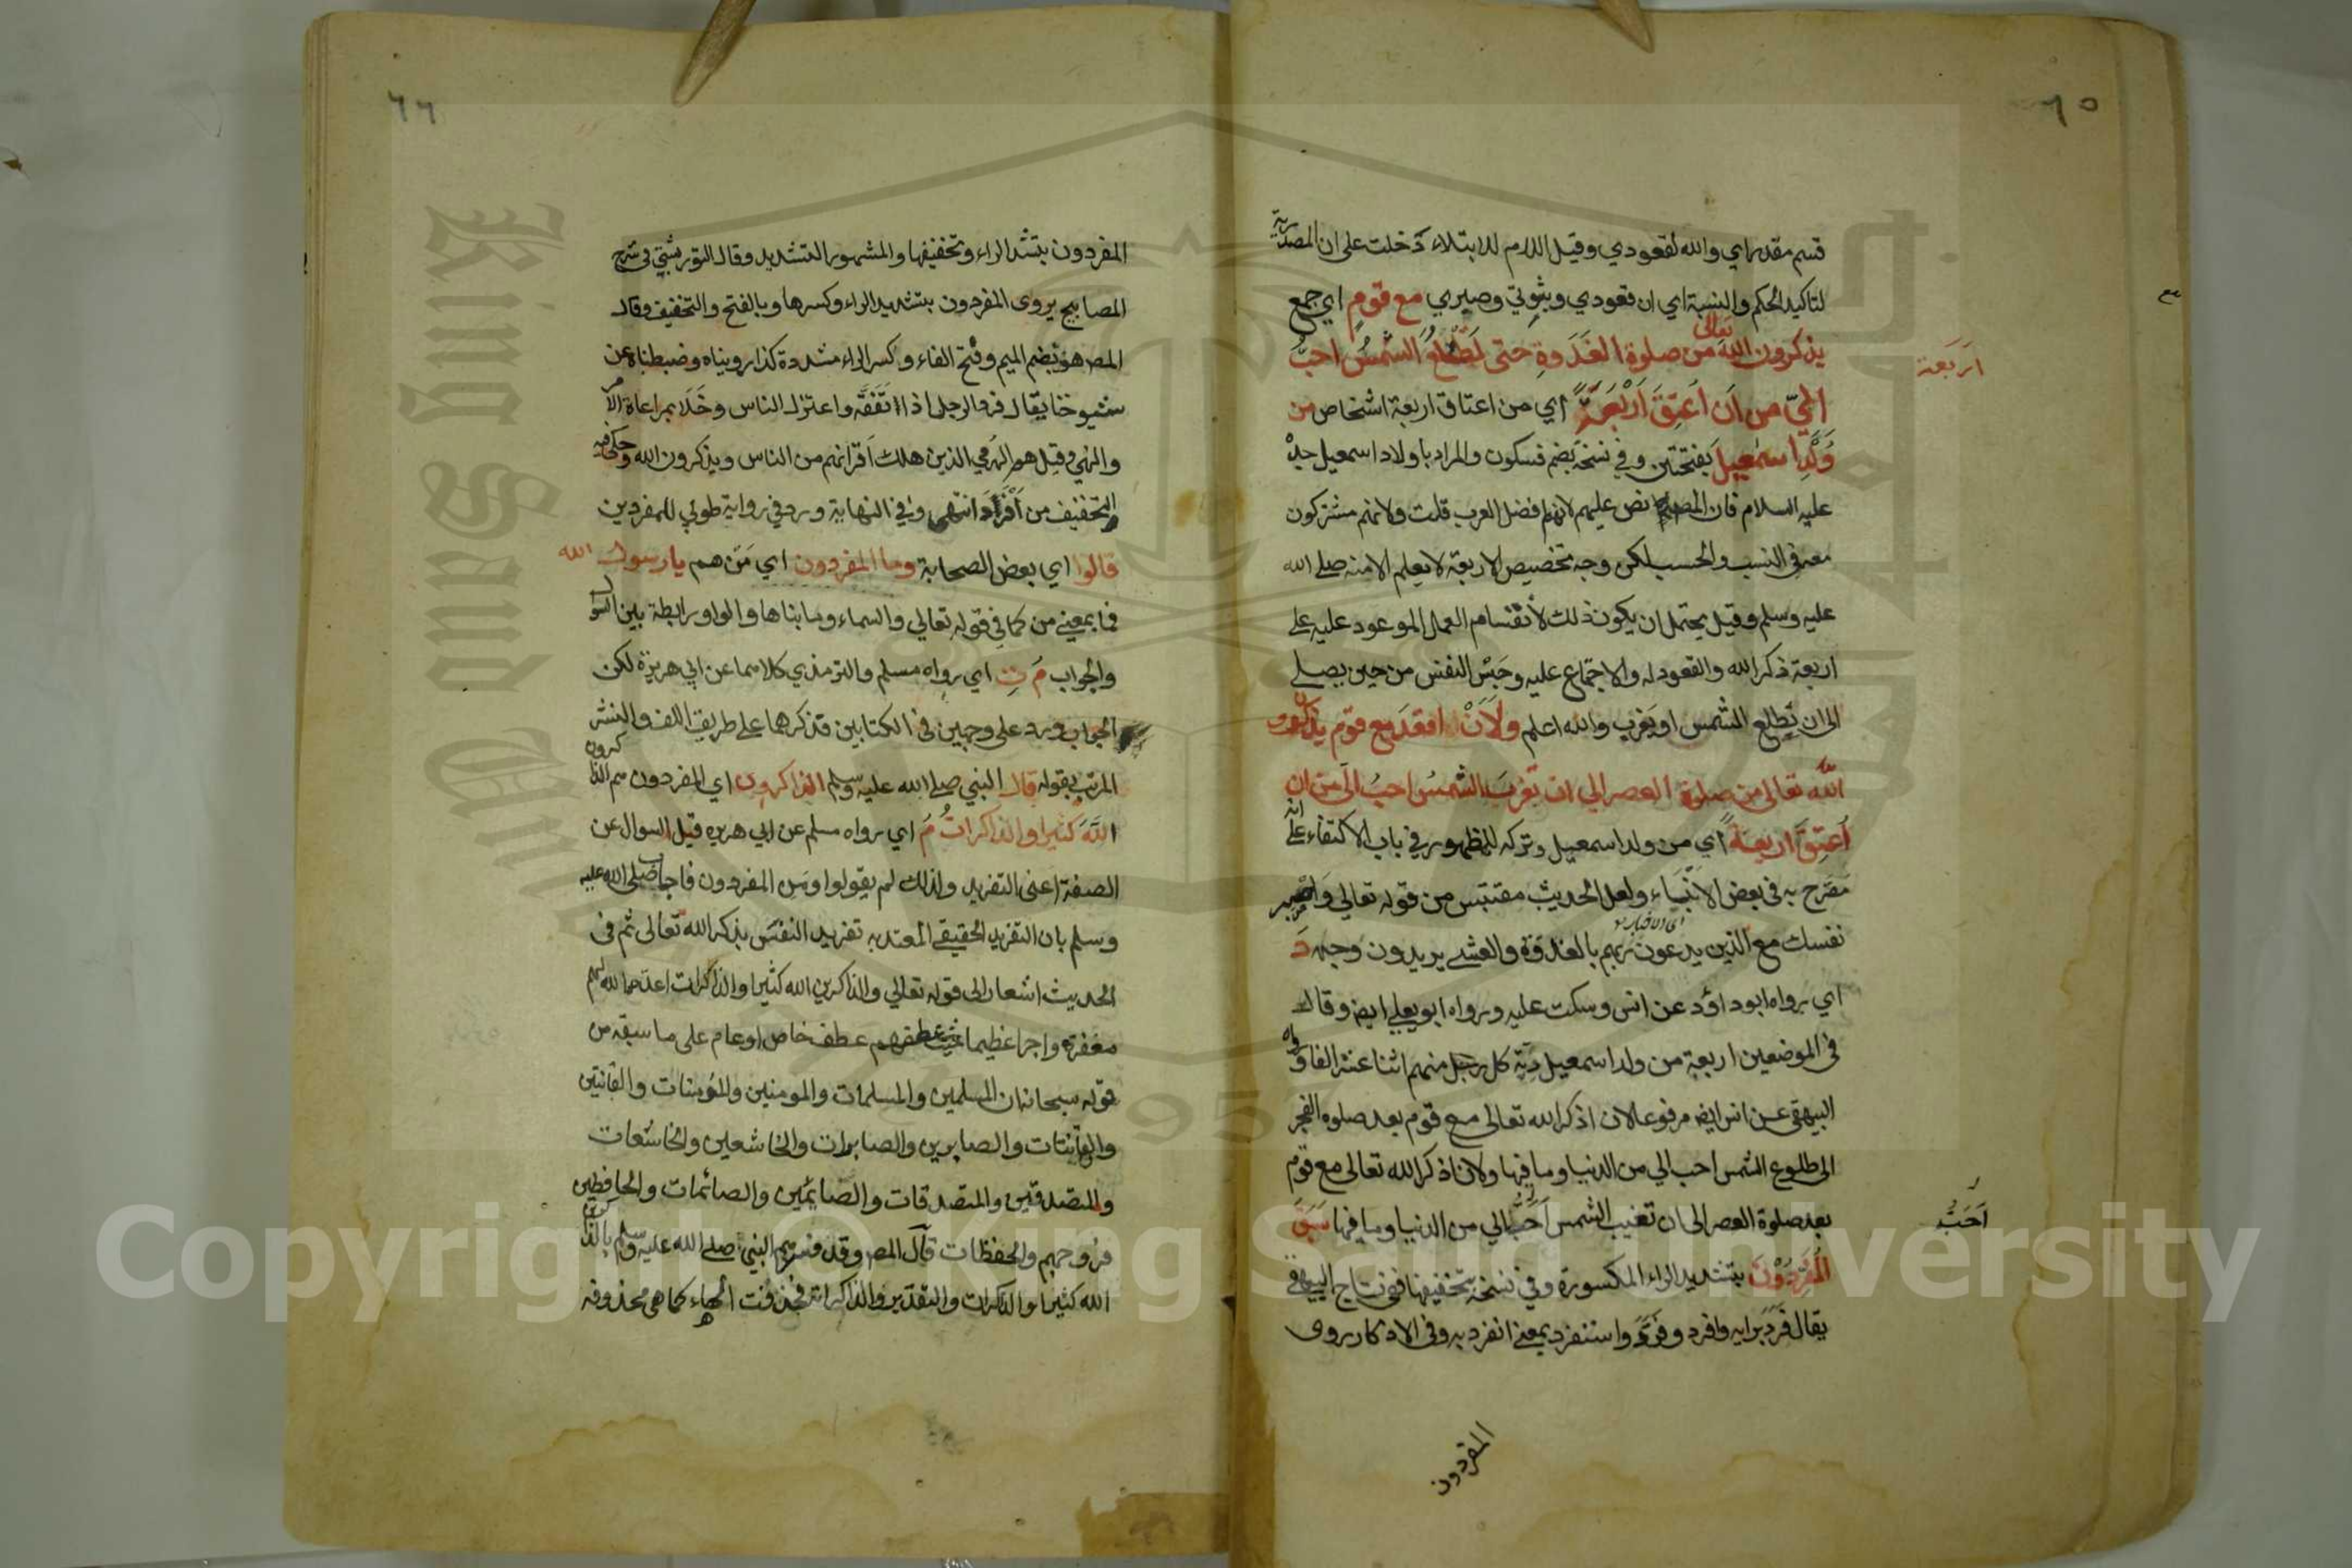 ٦٥
قسم مقدر اي والله لقعودي وقيل اللام للابتداء دخلت على ان المصدرية
لتاكيد الحكم والنسبة اي ان قعودي وثبوتي وصبري مع قوم اي جمع
يذكرون الله تعالى من صلوة الغدوة حتى تطلع الشمس احب
اربعة
الي من ان اعتق اربعة اي من اعتاق اربعة اشخاص من
ولد اسمعيل بفتحتين وفي نسخة بضم فسكون والمراد باولاد اسمعيل جده
عليه السلام فان المصـ نص عليهم لانهم افضل العرب قلت ولانهم مشتركون
معه في النسب والحسب لكن وجه تخصيص الاربعة لا يعلم الا منه صلى الله
عليه وسلم وقيل يحتمل ان يكون ذلك لانقسام العمل الموعود عليه على
اربعة ذكر الله والقعود له والاجتماع عليه وحبس النفس من حين يصلي
الى ان تطلع الشمس او يغرب والله اعلم ولان اقعد مع قوم يذكرون
الله تعالى من صلوة العصر الي ان تغرب الشمس احب الي من ان
اعتق اربعة اي من ولد اسمعيل وتركه للظهور في باب الاكتفاء على انه
مصرح به في بعض الانبياء ولعل الحديث مقتبس من قوله تعالى واصبر
نفسك مع الذين يدعون ربهم بالغدوة والعشي يريدون وجهه د
اي رواه ابو داؤد عن انس وسكت عليه ورواه ابو يعلى ايضا وقال
في الموضعين اربعة من ولد اسمعيل دية كل رجل منهم اثنا عشر الفا ورواه
البيهقي عن انس ايضا مرفوعا لان اذكر الله تعالى مع قوم بعد صلوة الفجر
الى طلوع الشمس احب الي من الدنيا وما فيها ولان اذكر الله تعالى مع قوم
بعد صلوة العصر الى ان تغيب الشمس احب الي من الدنيا وما فيها سبق
احب
المفردون بتشديد الراء المكسورة وفي نسخة بتخفيفها ففي تاج البيهقي
يقال فرد برايه وافرد وفرد واستفرد بمعنى انفرد به وفي الاذكار روى
المفردون
٦٦
المفردون بتشد الراء وتخفيفها والمشهور التشديد وقال التوربشتي في شرح
المصابيح يروى المفردون بتشديد الراء وكسرها وبالفتح والتخفيف وقال
المصـ هو بضم الميم وفتح الفاء وكسر الراء مشددة كذا رويناه وضبطناه عن
شيوخنا يقال فرد الرجل اذا تفقه واعتزل الناس وخلا بمراعاة الامر
والنهي وقيل هم الهرمي الذين هلك اقرانهم من الناس ويذكرون الله وحكي فيه
التخفيف من افراد انتهى وفي النهاية ورد في رواية طوبي للمفردين
قالوا اي بعض الصحابة وما المفردون اي من هم يا رسول الله
فما بمعنى من كما في قوله تعالي والسماء وما بناها والواو رابطة بين السؤال
والجواب م ت اي رواه مسلم والترمذي كلاهما عن ابي هريرة لكن
الجواب ورد على وجهين في الكتابين قد ذكرهما على طريق اللف والنشر
المرتب بقوله قال النبي صلى الله عليه وسلم الذاكرون اي المفردون هم الذاكرون
الله كثيرا والذاكرات م اي رواه مسلم عن ابي هريره قيل السوال عن
الصفة اعني التفريد ولذلك لم يقولوا ومن المفردون فاجاب صلى الله عليه
وسلم بان التفريد الحقيقي المعتد به تفريد النفس بذكر الله تعالى ثم في
الحديث اشعار الى قوله تعالي والذاكرين الله كثيرا والذاكرات اعد الله لهم
مغفرة واجرا عظيما حيث عطفهم عطف خاص او عام على ما سبقه من
قوله سبحانه ان المسلمين والمسلمات والمومنين والمؤمنات والقانتين
والقانتات والصابرين والصابرات والخاشعين والخاشعات
والمتصدقين والمتصدقات والصائمين والصائمات والحافظين
فروجهم والحفظات قال المصـ وقد فسرهم النبي صلى الله عليه وسلم بالذاكرين
الله كثيرا والذاكرات والتقدير والذاكراته فحذفت الهاء كما هي محذوفه
Copyright © King Saud University
King Saud University
1957